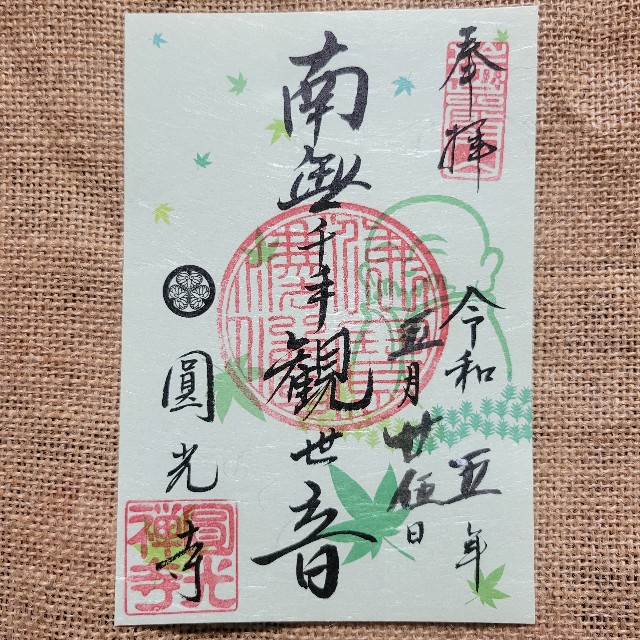 奉拝
令和五年
五月廿伍日
南無千手観世音
圓光寺
圓光禅寺